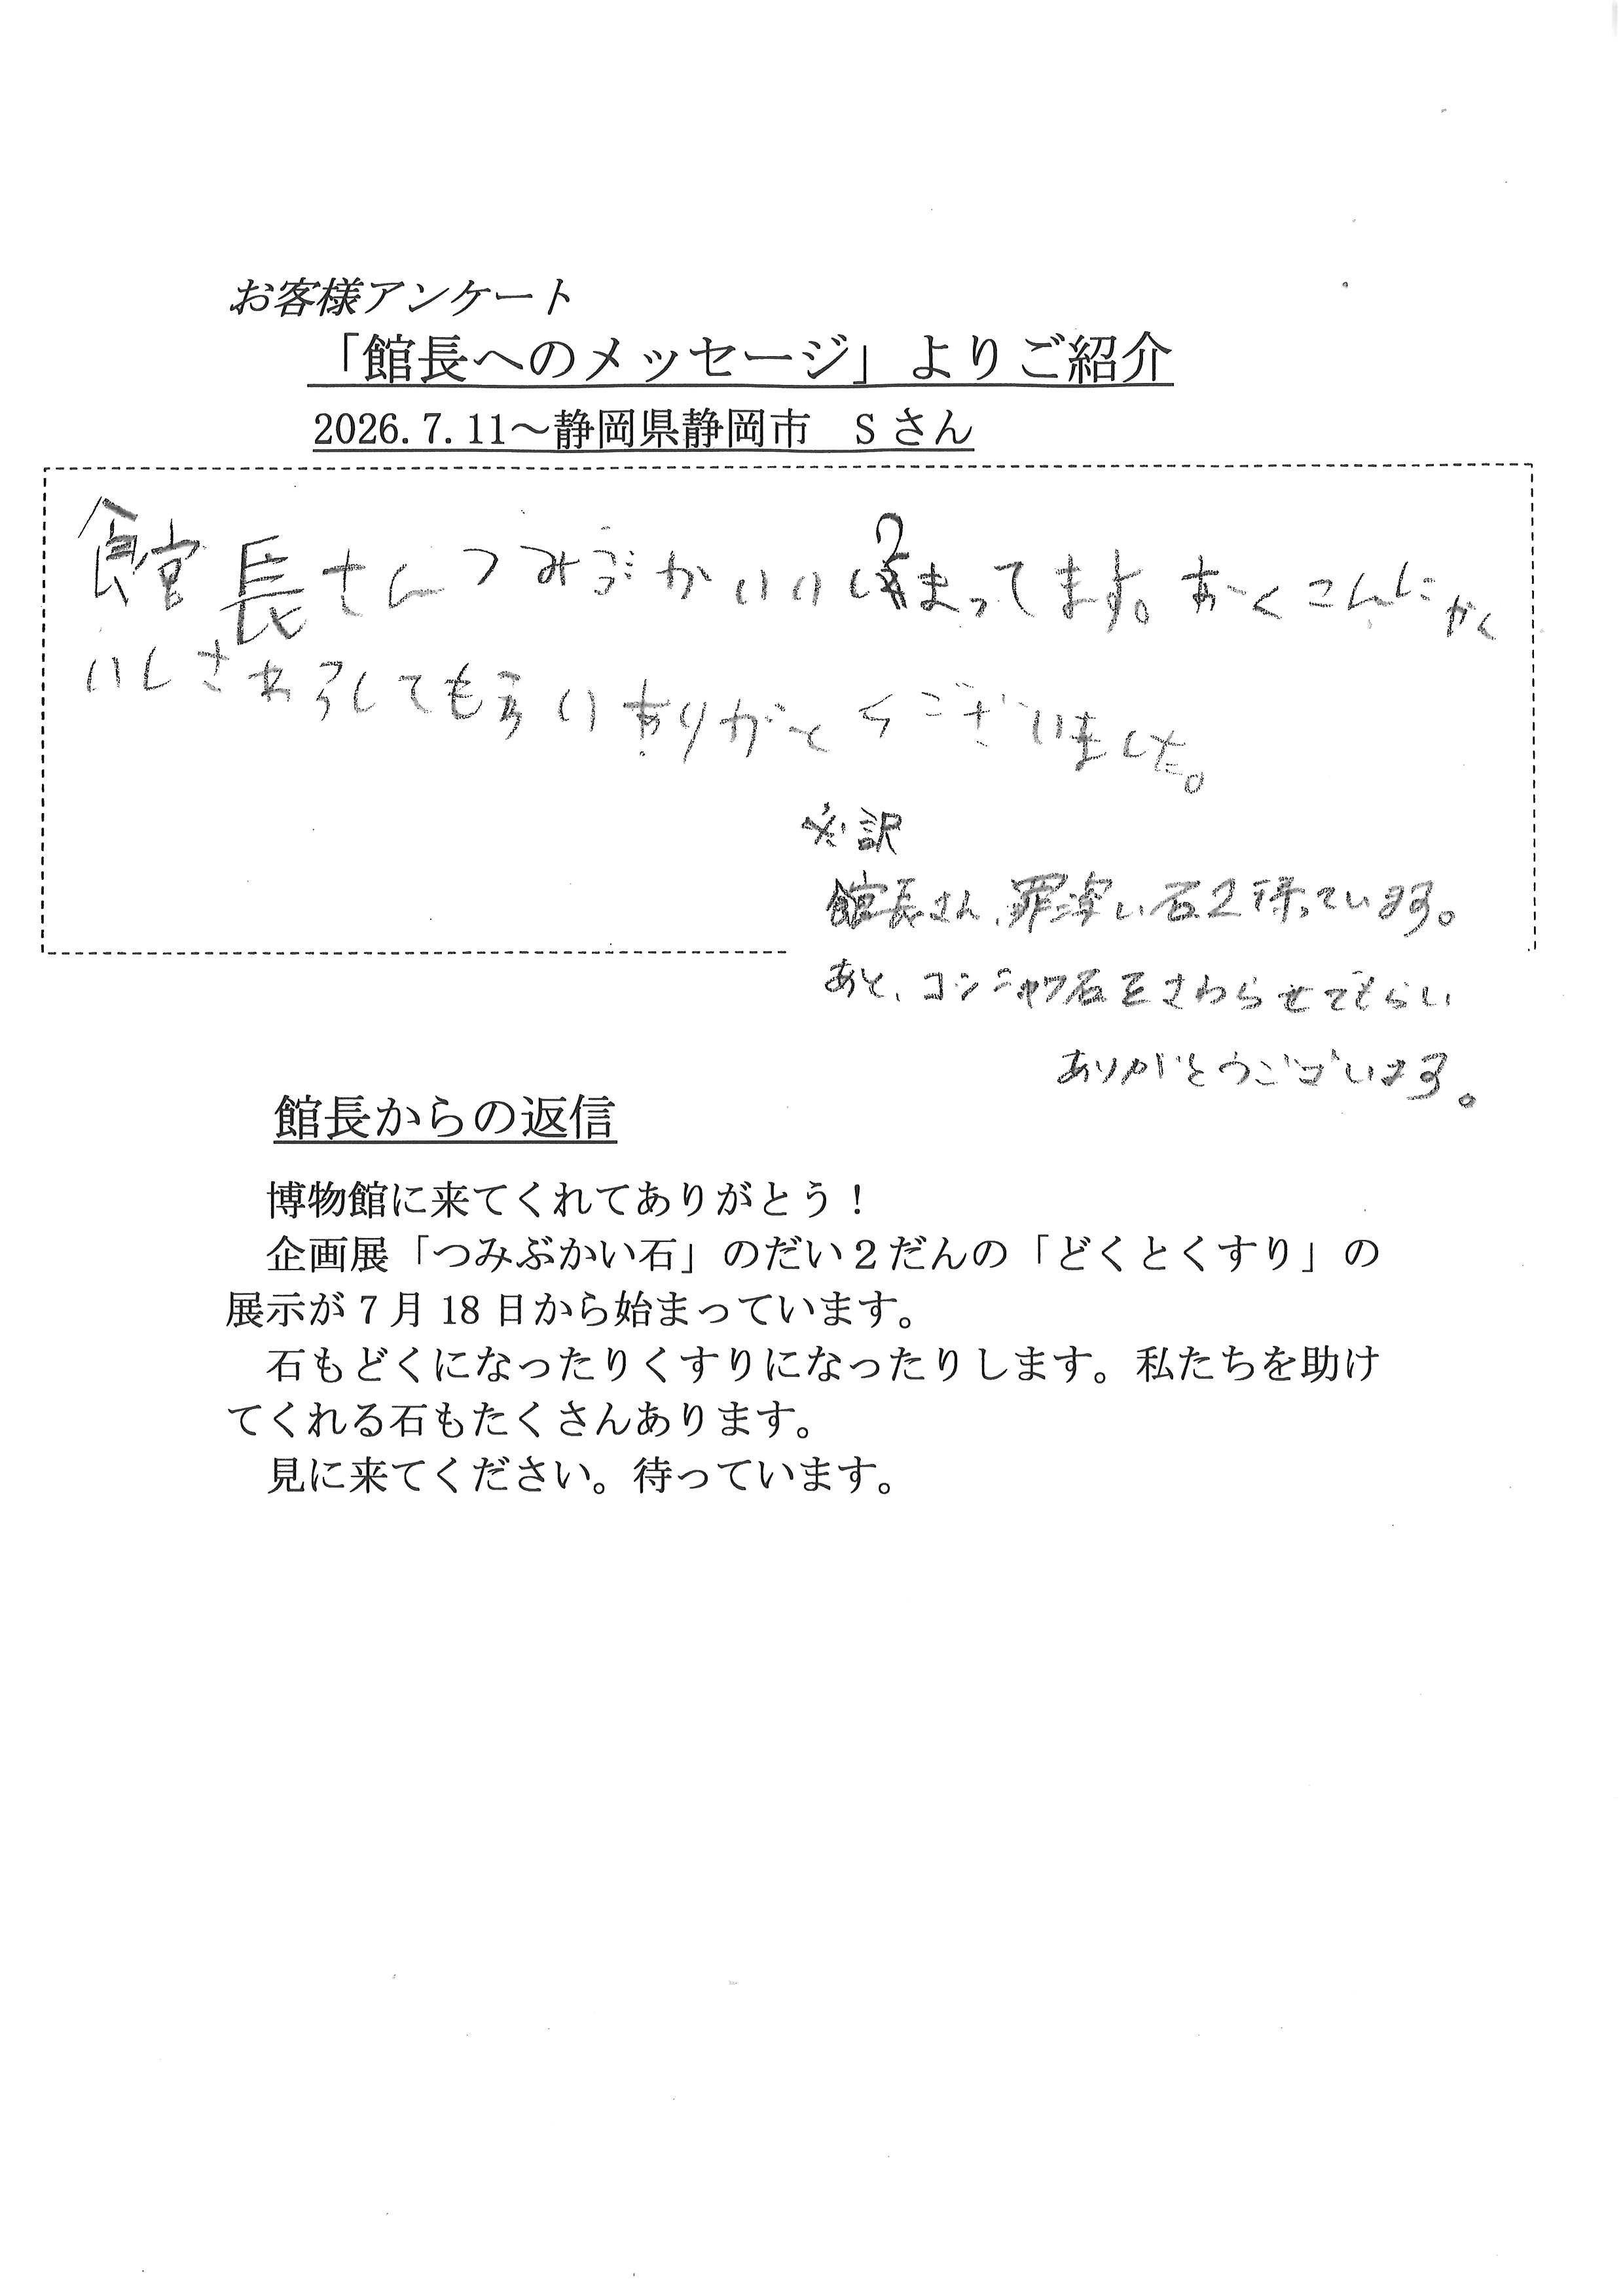 お客様アンケート
「館長へのメッセージ」よりご紹介
2026.7.11～静岡県静岡市　Sさん
館長さんつみぶかいいし2まってます。あとこんにゃく
いしさわらしてもらいありがとうございました。
※訳
館長さん、罪深い石2待っています。
あと、コンニャク石をさわらせてもらい
ありがとうございます。
館長からの返信
博物館に来てくれてありがとう！
企画展「つみぶかい石」のだい２だんの「どくとくすり」の
展示が７月18日から始まっています。
石もどくになったりくすりになったりします。私たちを助け
てくれる石もたくさんあります。
見に来てください。待っています。